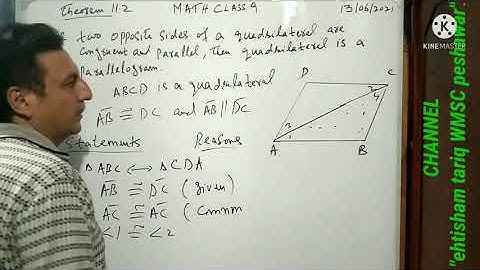 Theorem 11.2 MATH CLASS 9 13/06/2021
two opposite sides of a quadrilateral are
Congruent and parallel, then quadrilateral is a
parallelogram.
ABCD is a quadrilateral
AB ≅ DC and AB || DC
Statements Reasons
Δ ABC ↔ Δ CDA
AB ≅ DC (given)
AC ≅ AC (Common
<1 ≅ <2
D C
2
4
2
1
A B
K
KINEMASTER
CHANNEL
"ehtisham tariq WMSC peshawar"